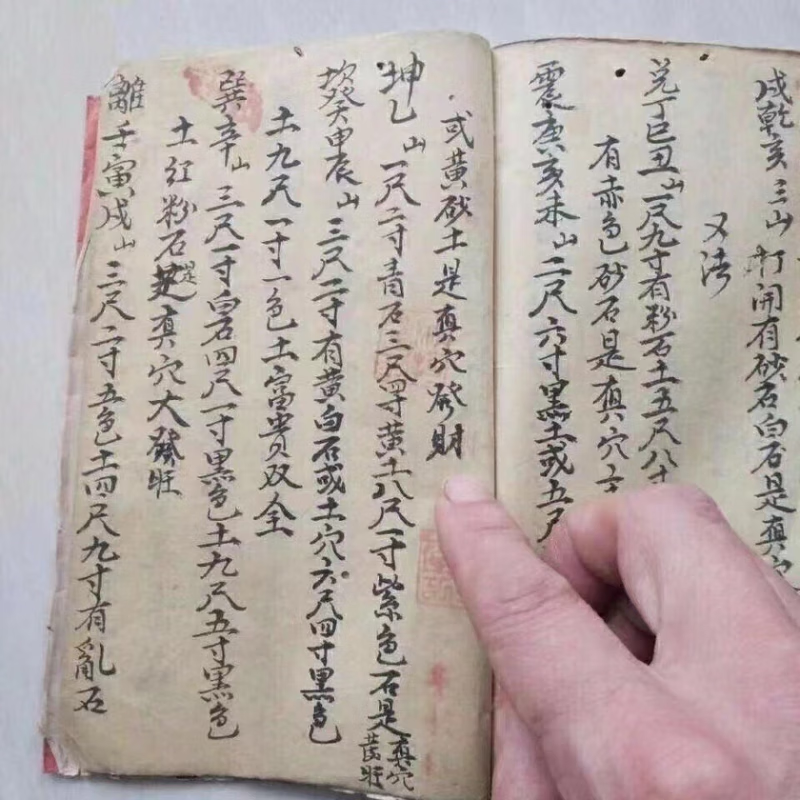 戌乾亥三山打開有砂石白石是真穴
又法
兑丁巳丑山一尺九寸有粉石土五尺八寸
有赤色砂石是真穴
震庚亥未山二尺六寸黑土或五尺
或黃砂土是真穴發財
坤乙山一尺二寸青石三尺四寸黃土八尺一寸紫色石是真穴
發旺
坎癸申辰山三尺二寸有黃白石或土穴六尺四寸黑色
土九尺一寸一色土富貴双全
巽辛山三尺一寸白石四尺一寸黑色土九尺五寸黑色
土紅粉石是真穴大發旺
離壬寅戌山三尺二寸五色土四尺九寸有亂石